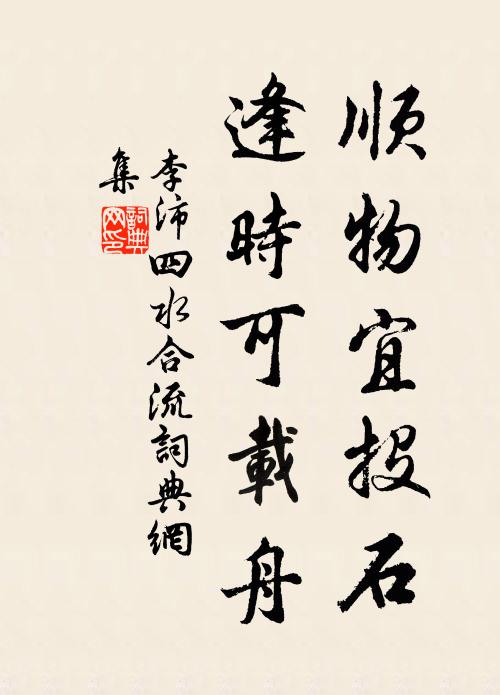 順物宜投石
逢時可載舟
李沛四水合流詞典網
集
詞典網印